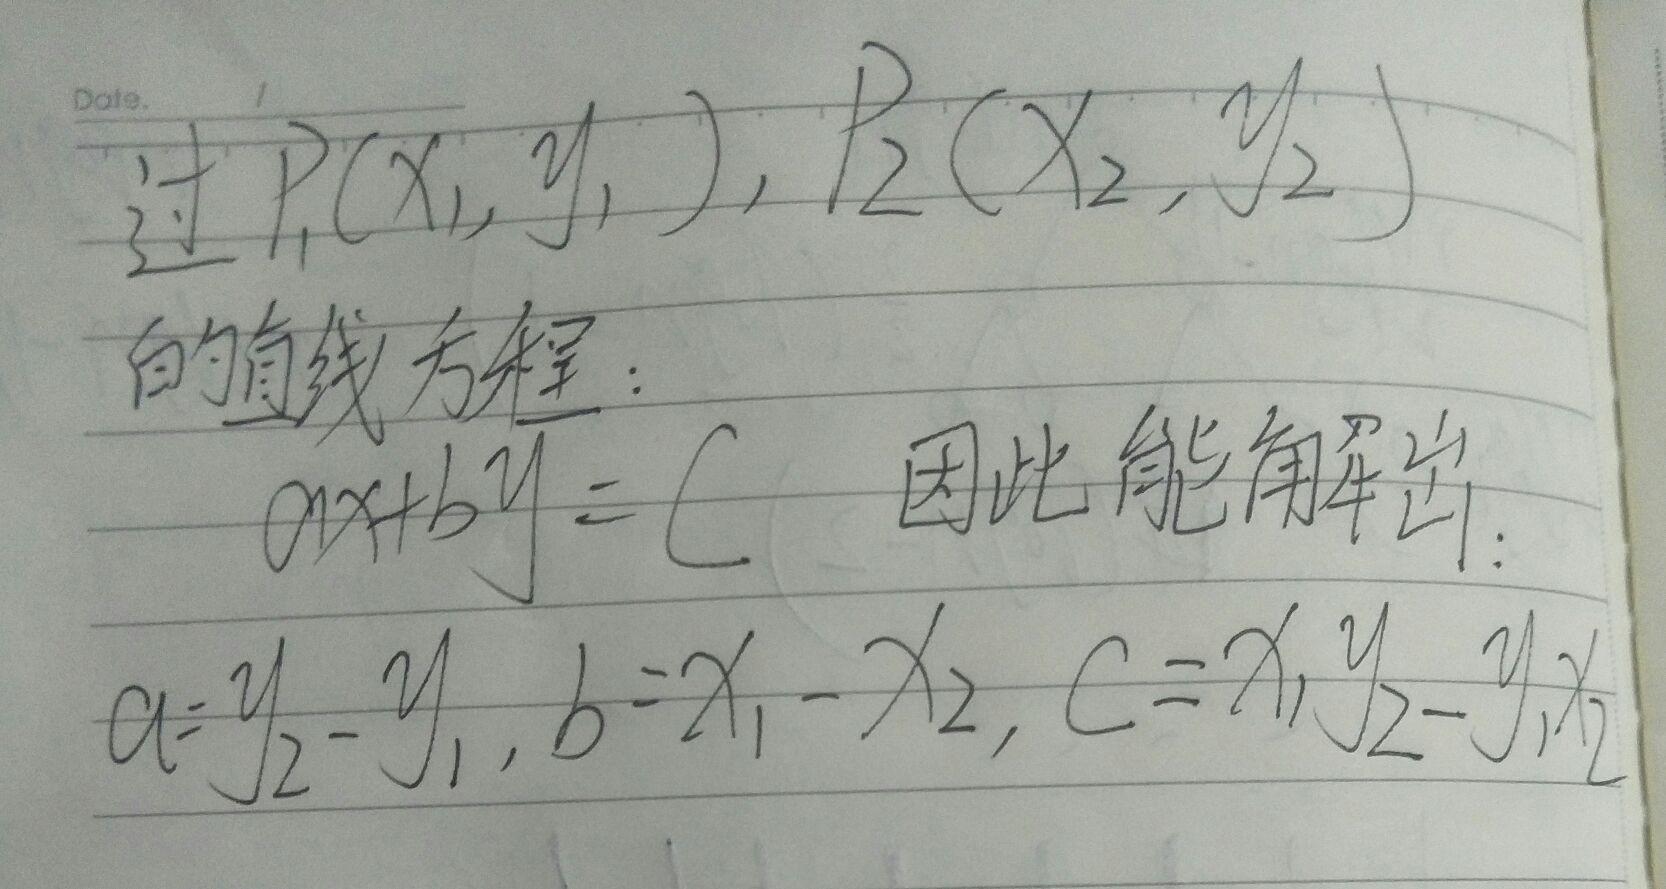 Date. /
过P₁(x₁, y₁), P₂(x₂, y₂)
的直线方程:
ax+by=C 因此能解出:
a=y₂-y₁, b=x₁-x₂, C=x₁y₂-y₁x₂